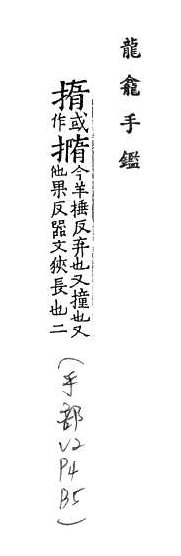 龍龕手鑑
或作
今羊捶反弃也又撞也又
他果反噐文狹長也二
(手部V2P4B5)